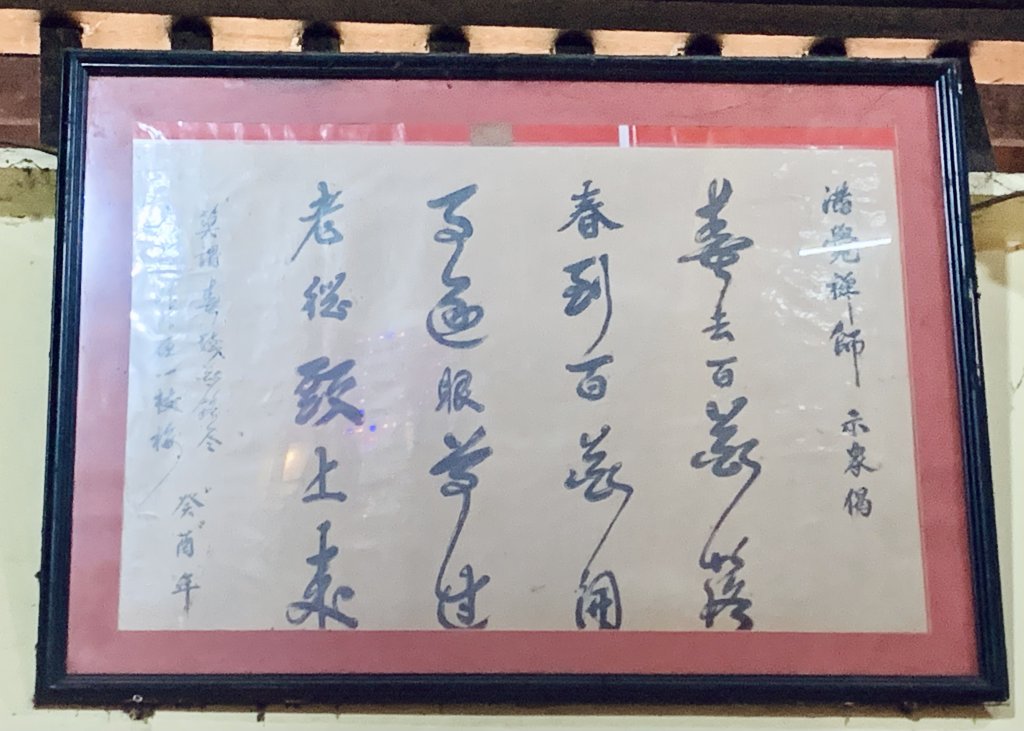 滿覺禪師 示衆偈
春去百花落
春到百花開
事逐眼前過
老從頭上來
莫謂春殘花落尽
一枝梅
癸酉年